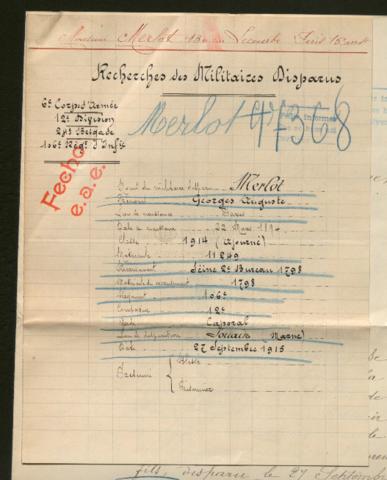 Monsieur Merlot
Recherches des Militaires Disparus
6e Corps d'Armée
12e Division
24e Brigade
106e Régt d'Infie
Merlot 47368
Fecho
e.a.e.
Nom du militaire disparu Merlot
Prénoms Georges Auguste
Lieu de naissance Paris
Date de naissance 22 Mars
Classe 1914 (Ajourné)
Matricule 11249
Recrutement Seine 2e Bureau 1798
Matricule de recrutement 1798
Régiment 106e
Compagnie 12e
Grade Caporal
Lieu de disparition Souain (Marne)
Date 27 Septembre 1915
Présumé
Blessé
Prisonnier
fils, disparu le 27 Septemb